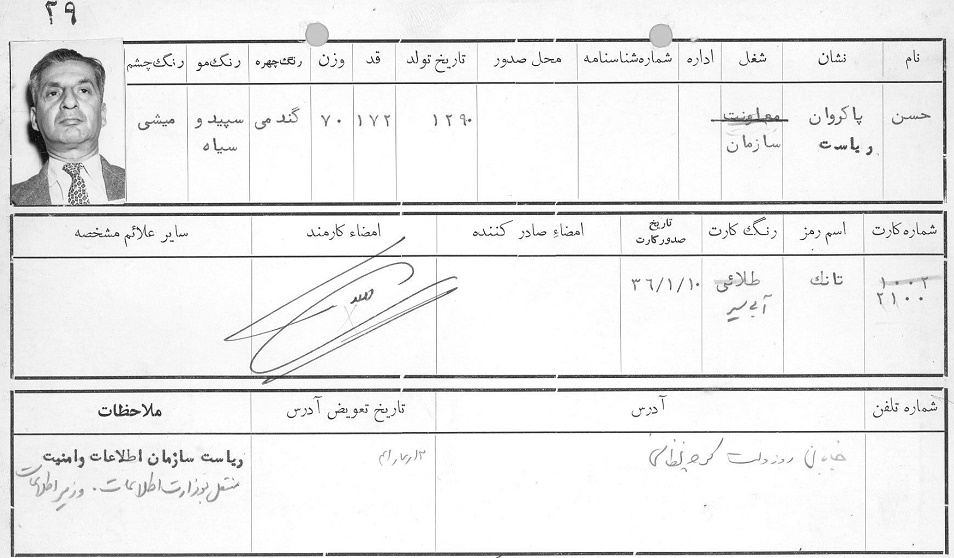 ۳۹
نام نشان شغل اداره شماره شناسنامه محل صدور تاریخ تولد قد وزن رنگ چهره رنگ مو رنگ چشم
حسن پاکروان معاونت ۱۲۹۰ ۱۷۲ ۷۰ گندمی سپید و میشی
ریاست سازمان سیاه
شماره کارت اسم رمز رنگ کارت تاریخ صدور کارت امضاء صادر کننده امضاء کارمند سایر علائم مشخصه
۱۰۰۲ تانك طلائی ۳۶/۱/۱۰
۲۱۰۰ آبی سیر
شماره تلفن آدرس تاریخ تعویض آدرس ملاحظات
خیابان روزولت ریاست سازمان اطلاعات وامنیت
منتقل بوزارت اطلاعات. وزیر اطلاعات